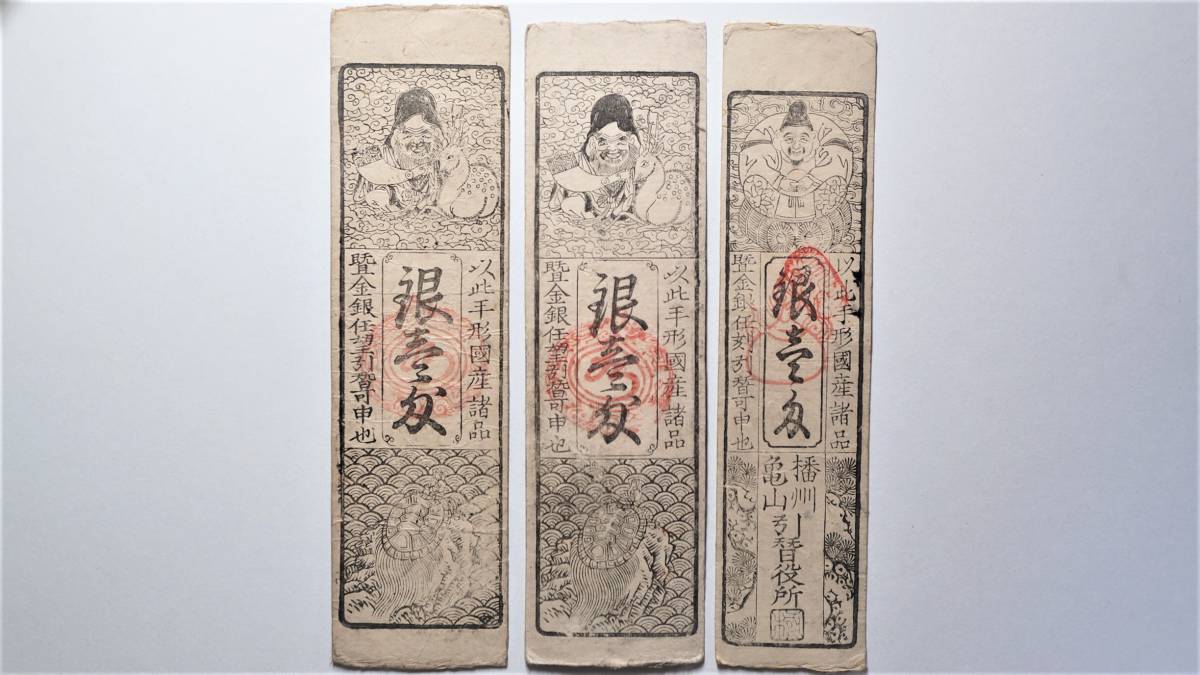 以此手形國産諸品
銀壹匁
曁金銀任望引替可申也
以此手形國産諸品
銀壹匁
曁金銀任望引替可申也
以此手形國産諸品
銀壹匁
曁金銀任刻引替可申也
播州
亀山引替役所